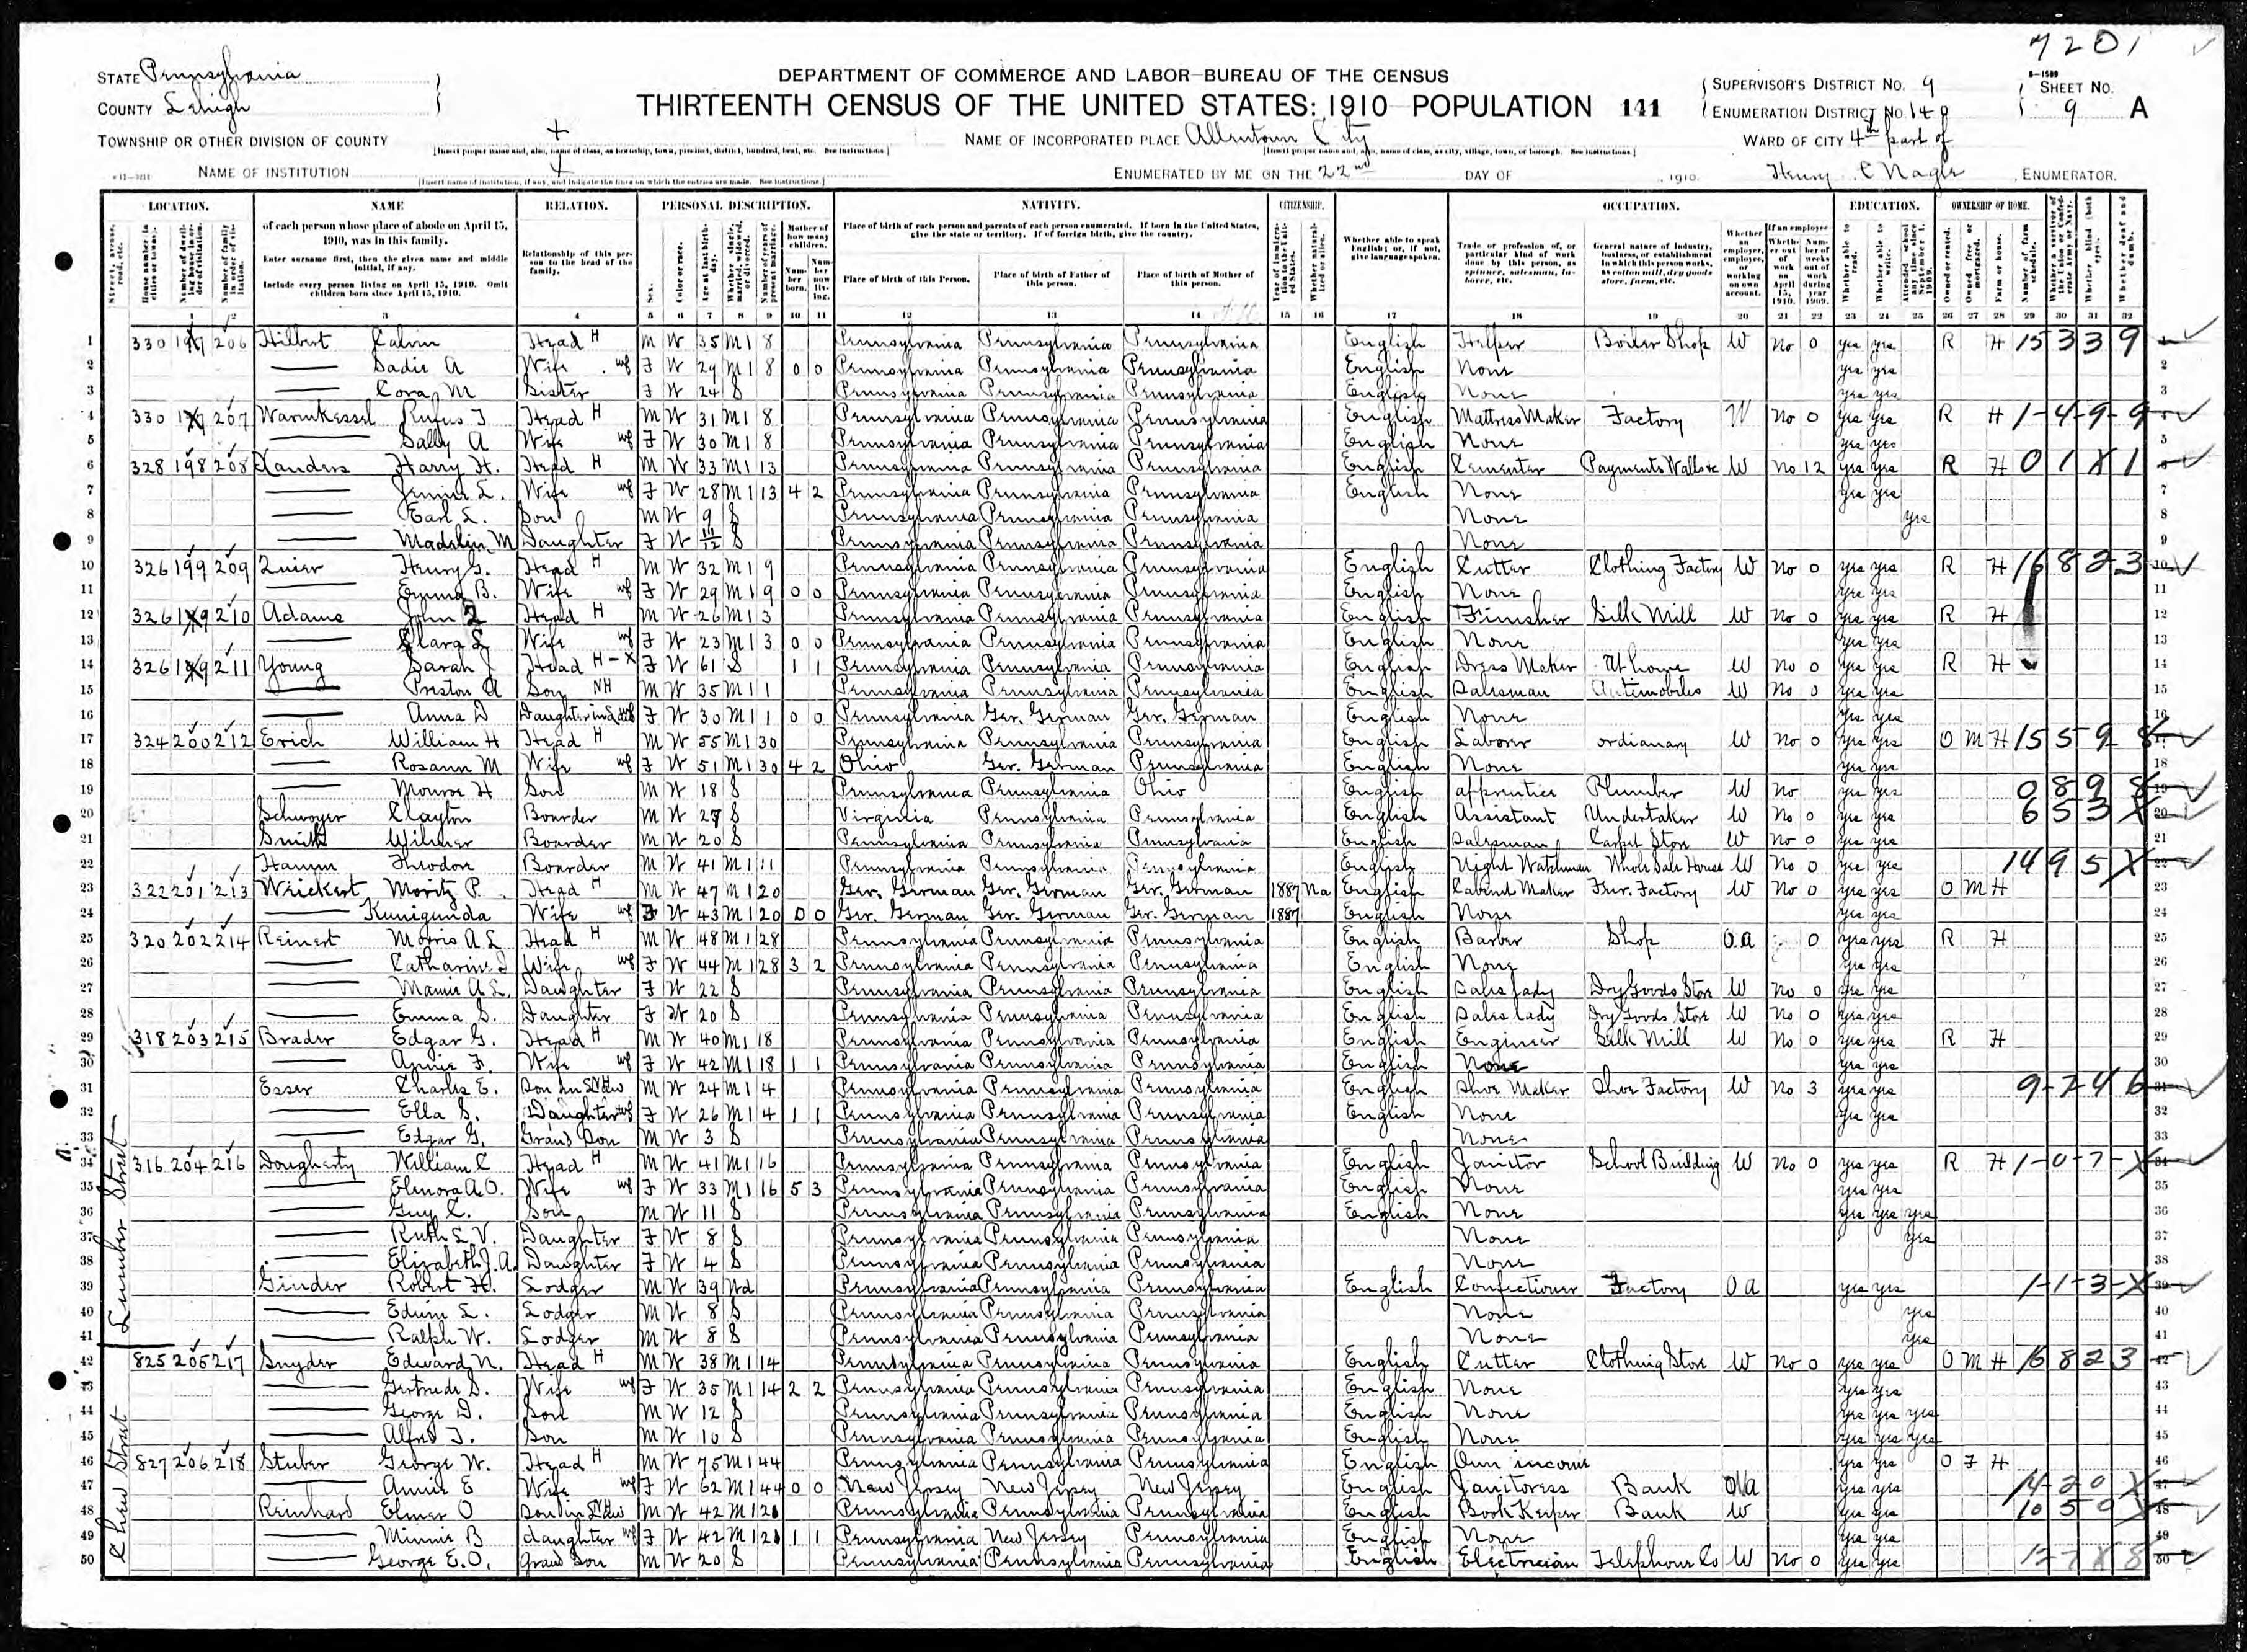 7201
STATE Pennsylvania
COUNTY Lehigh
TOWNSHIP OR OTHER DIVISION OF COUNTY
NAME OF INSTITUTION
DEPARTMENT OF COMMERCE AND LABOR—BUREAU OF THE CENSUS
THIRTEENTH CENSUS OF THE UNITED STATES: 1910 POPULATION 141
NAME OF INCORPORATED PLACE Allentown City
ENUMERATED BY ME ON THE 22nd DAY OF , 1910.
SUPERVISOR'S DISTRICT No. 9
ENUMERATION DISTRICT No.
SHEET No. 9 A
WARD OF CITY 4th part of
Henry C Nagle , ENUMERATOR.
LOCATION. NAME RELATION. PERSONAL DESCRIPTION. NATIVITY. CITIZENSHIP. OCCUPATION. EDUCATION. OWNERSHIP OF HOME.
of each person whose place of abode on April 15, 1910, was in this family.
Enter surname first, then the given name and middle initial, if any.
Include every person living on April 15, 1910. Omit children born since April 15, 1910.
Relationship of this person to the head of the family.
Place of birth of each person and parents of each person enumerated. If born in the United States, give the state or territory. If of foreign birth, give the country.
Place of birth of this Person. Place of birth of Father of this person. Place of birth of Mother of this person.
Whether able to speak English; or, if not, give language spoken.
1 330 206 Hilbert Calvin Head H M W 35 M1 8 Pennsylvania Pennsylvania Pennsylvania English Helper Boiler Shop W No 0 yes yes R H 15 3 3 9
2 Sadie A Wife F W 29 M1 8 0 0 Pennsylvania Pennsylvania Pennsylvania English None yes yes
3 Cora M Sister F W 24 S Pennsylvania Pennsylvania Pennsylvania English None yes yes
4 330 207 Warmkessel Rufus Head H M W 31 M1 8 Pennsylvania Pennsylvania Pennsylvania English Mattress Maker Factory W No 0 yes yes R H 1-4-9-9
5 Sally A Wife F W 30 M1 8 Pennsylvania Pennsylvania Pennsylvania English None yes yes
6 328 198 208 Xanders Harry H. Head H M W 33 M1 13 Pennsylvania Pennsylvania Pennsylvania English Cementer W No 12 yes yes R H 0 1 X 1
7 Jennie L. Wife F W 28 M1 13 4 2 Pennsylvania Pennsylvania Pennsylvania English None yes yes
8 Earl L. Son M W 9 S Pennsylvania Pennsylvania Pennsylvania None yes
9 Madelin M Daughter F W S Pennsylvania Pennsylvania Pennsylvania None
10 326 199 209 Henry Head H M W 32 M1 9 Pennsylvania Pennsylvania Pennsylvania English Cutter Clothing Factory W No 0 yes yes R H 16 8 2 3
11 Emma B. Wife F W 29 M1 9 0 0 Pennsylvania Pennsylvania Pennsylvania English None yes yes
12 326 210 Adams John Head H M W 26 M1 3 Pennsylvania Pennsylvania Pennsylvania English Finisher Silk Mill W No 0 yes yes R H
13 Clara L Wife F W 23 M1 3 0 0 Pennsylvania Pennsylvania Pennsylvania English None yes yes
14 326 211 Young Sarah J Head H-X F W 61 S 1 1 Pennsylvania Pennsylvania Pennsylvania English Dress Maker At home W No 0 yes yes R H
15 Preston A Son NH M W 35 M1 1 Pennsylvania Pennsylvania Pennsylvania English Salesman Automobiles W No 0 yes yes
16 Anna D Daughter in Law F W 30 M1 1 0 0 Pennsylvania Ger. German Ger. German English None yes yes
17 324 200 212 Erich William H Head H M W 55 M1 30 Pennsylvania Pennsylvania Pennsylvania English Laborer ordianary W No 0 yes yes O M H 15 5 9 8
18 Rosann M Wife F W 51 M1 30 4 2 Ohio Ger. German Pennsylvania English None yes yes
19 Monroe H Son M W 18 S Pennsylvania Pennsylvania Ohio English apprentice Plumber W No yes yes 0 8 9 8
20 Schwoyer Clayton Boarder M W S Virginia Pennsylvania Pennsylvania English Assistant Undertaker W No 0 yes yes 6 5 3 X
21 Smith Wilmer Boarder M W 20 S Pennsylvania Pennsylvania Pennsylvania English Salesman Carpet Store W No 0 yes yes
22 Hamm Theodore Boarder M W 41 M1 11 Pennsylvania Pennsylvania Pennsylvania English Night Watchman Whole Sale House W No 0 yes yes 14 9 5 X
23 322 201 213 Weickert Moritz P. Head H M W 47 M1 20 Ger. German Ger. German Ger. German 1887 Na English Cabinet Maker Fur. Factory W No 0 yes yes O M H
24 Kunigunda Wife F W 43 M1 20 0 0 Ger. German Ger. German Ger. German 1887 English None yes yes
25 320 202 214 Reinert Morris A L Head H M W 48 M1 28 Pennsylvania Pennsylvania Pennsylvania English Barber Shop O a 0 yes yes R H
26 Catharine Wife F W 44 M1 28 3 2 Pennsylvania Pennsylvania Pennsylvania English None yes yes
27 Mamie A L. Daughter F W 22 S Pennsylvania Pennsylvania Pennsylvania English Sales lady Dry Goods Store W No 0 yes yes
28 Emma S. Daughter F W 20 S Pennsylvania Pennsylvania Pennsylvania English Sales lady Dry Goods Store W No 0 yes yes
29 318 203 215 Brader Edgar G. Head H M W 40 M1 18 Pennsylvania Pennsylvania Pennsylvania English Engineer Silk Mill W No 0 yes yes R H
30 Annie F. Wife F W 42 M1 18 1 1 Pennsylvania Pennsylvania Pennsylvania English None yes yes
31 Esser Charles E. Son in Law M W 24 M1 4 Pennsylvania Pennsylvania Pennsylvania English Shoe Maker Shoe Factory W No 3 yes yes 9-7 4 6
32 Ella S. Daughter F W 26 M1 4 1 1 Pennsylvania Pennsylvania Pennsylvania English None yes yes
33 Edgar G. Grand Son M W 3 S Pennsylvania Pennsylvania Pennsylvania None
34 316 204 216 Dougherty William C Head H M W 41 M1 16 Pennsylvania Pennsylvania Pennsylvania English Janitor School Building W No 0 yes yes R H 1-0-7-X
35 Elenora A O. Wife F W 33 M1 16 5 3 Pennsylvania Pennsylvania Pennsylvania English None yes yes
36 Guy C. Son M W 11 S Pennsylvania Pennsylvania Pennsylvania English None yes yes yes
37 Ruth L V. Daughter F W 8 S Pennsylvania Pennsylvania Pennsylvania None yes
38 Elizabeth J. A. Daughter F W 4 S Pennsylvania Pennsylvania Pennsylvania None
39 Ginder Robert H. Lodger M W 39 Wd Pennsylvania Pennsylvania Pennsylvania English Confectioner Factory O a yes yes 1-1-3-X
40 Edwin L. Lodger M W 8 S Pennsylvania Pennsylvania Pennsylvania None yes
41 Ralph W. Lodger M W 8 S Pennsylvania Pennsylvania Pennsylvania None yes
42 825 205 217 Snyder Edward N. Head H M W 38 M1 14 Pennsylvania Pennsylvania Pennsylvania English Cutter Clothing Store W No 0 yes yes O M H 16 8 2 3
43 Gertrude S. Wife F W 35 M1 14 2 2 Pennsylvania Pennsylvania Pennsylvania English None yes yes
44 George D. Son M W 12 S Pennsylvania Pennsylvania Pennsylvania English None yes yes yes
45 Alfred J. Son M W 10 S Pennsylvania Pennsylvania Pennsylvania English None yes yes yes
46 827 206 218 Stuber George W. Head H M W 75 M1 44 Pennsylvania Pennsylvania Pennsylvania English Own income yes yes O F H
47 Annie E Wife F W 62 M1 44 0 0 New Jersey New Jersey New Jersey English Janitoress Bank yes yes
48 Reinhard Elmer O Son in Law M W 42 M1 Pennsylvania Pennsylvania Pennsylvania English Book Keeper Bank W yes yes
49 Minnie B daughter F W 42 M1 1 1 Pennsylvania New Jersey Pennsylvania English None yes yes
50 George E. O. Grand Son M W 20 S Pennsylvania Pennsylvania Pennsylvania English Electrician Telephone Co W No 0 yes yes
Lumber Street
Chew Street